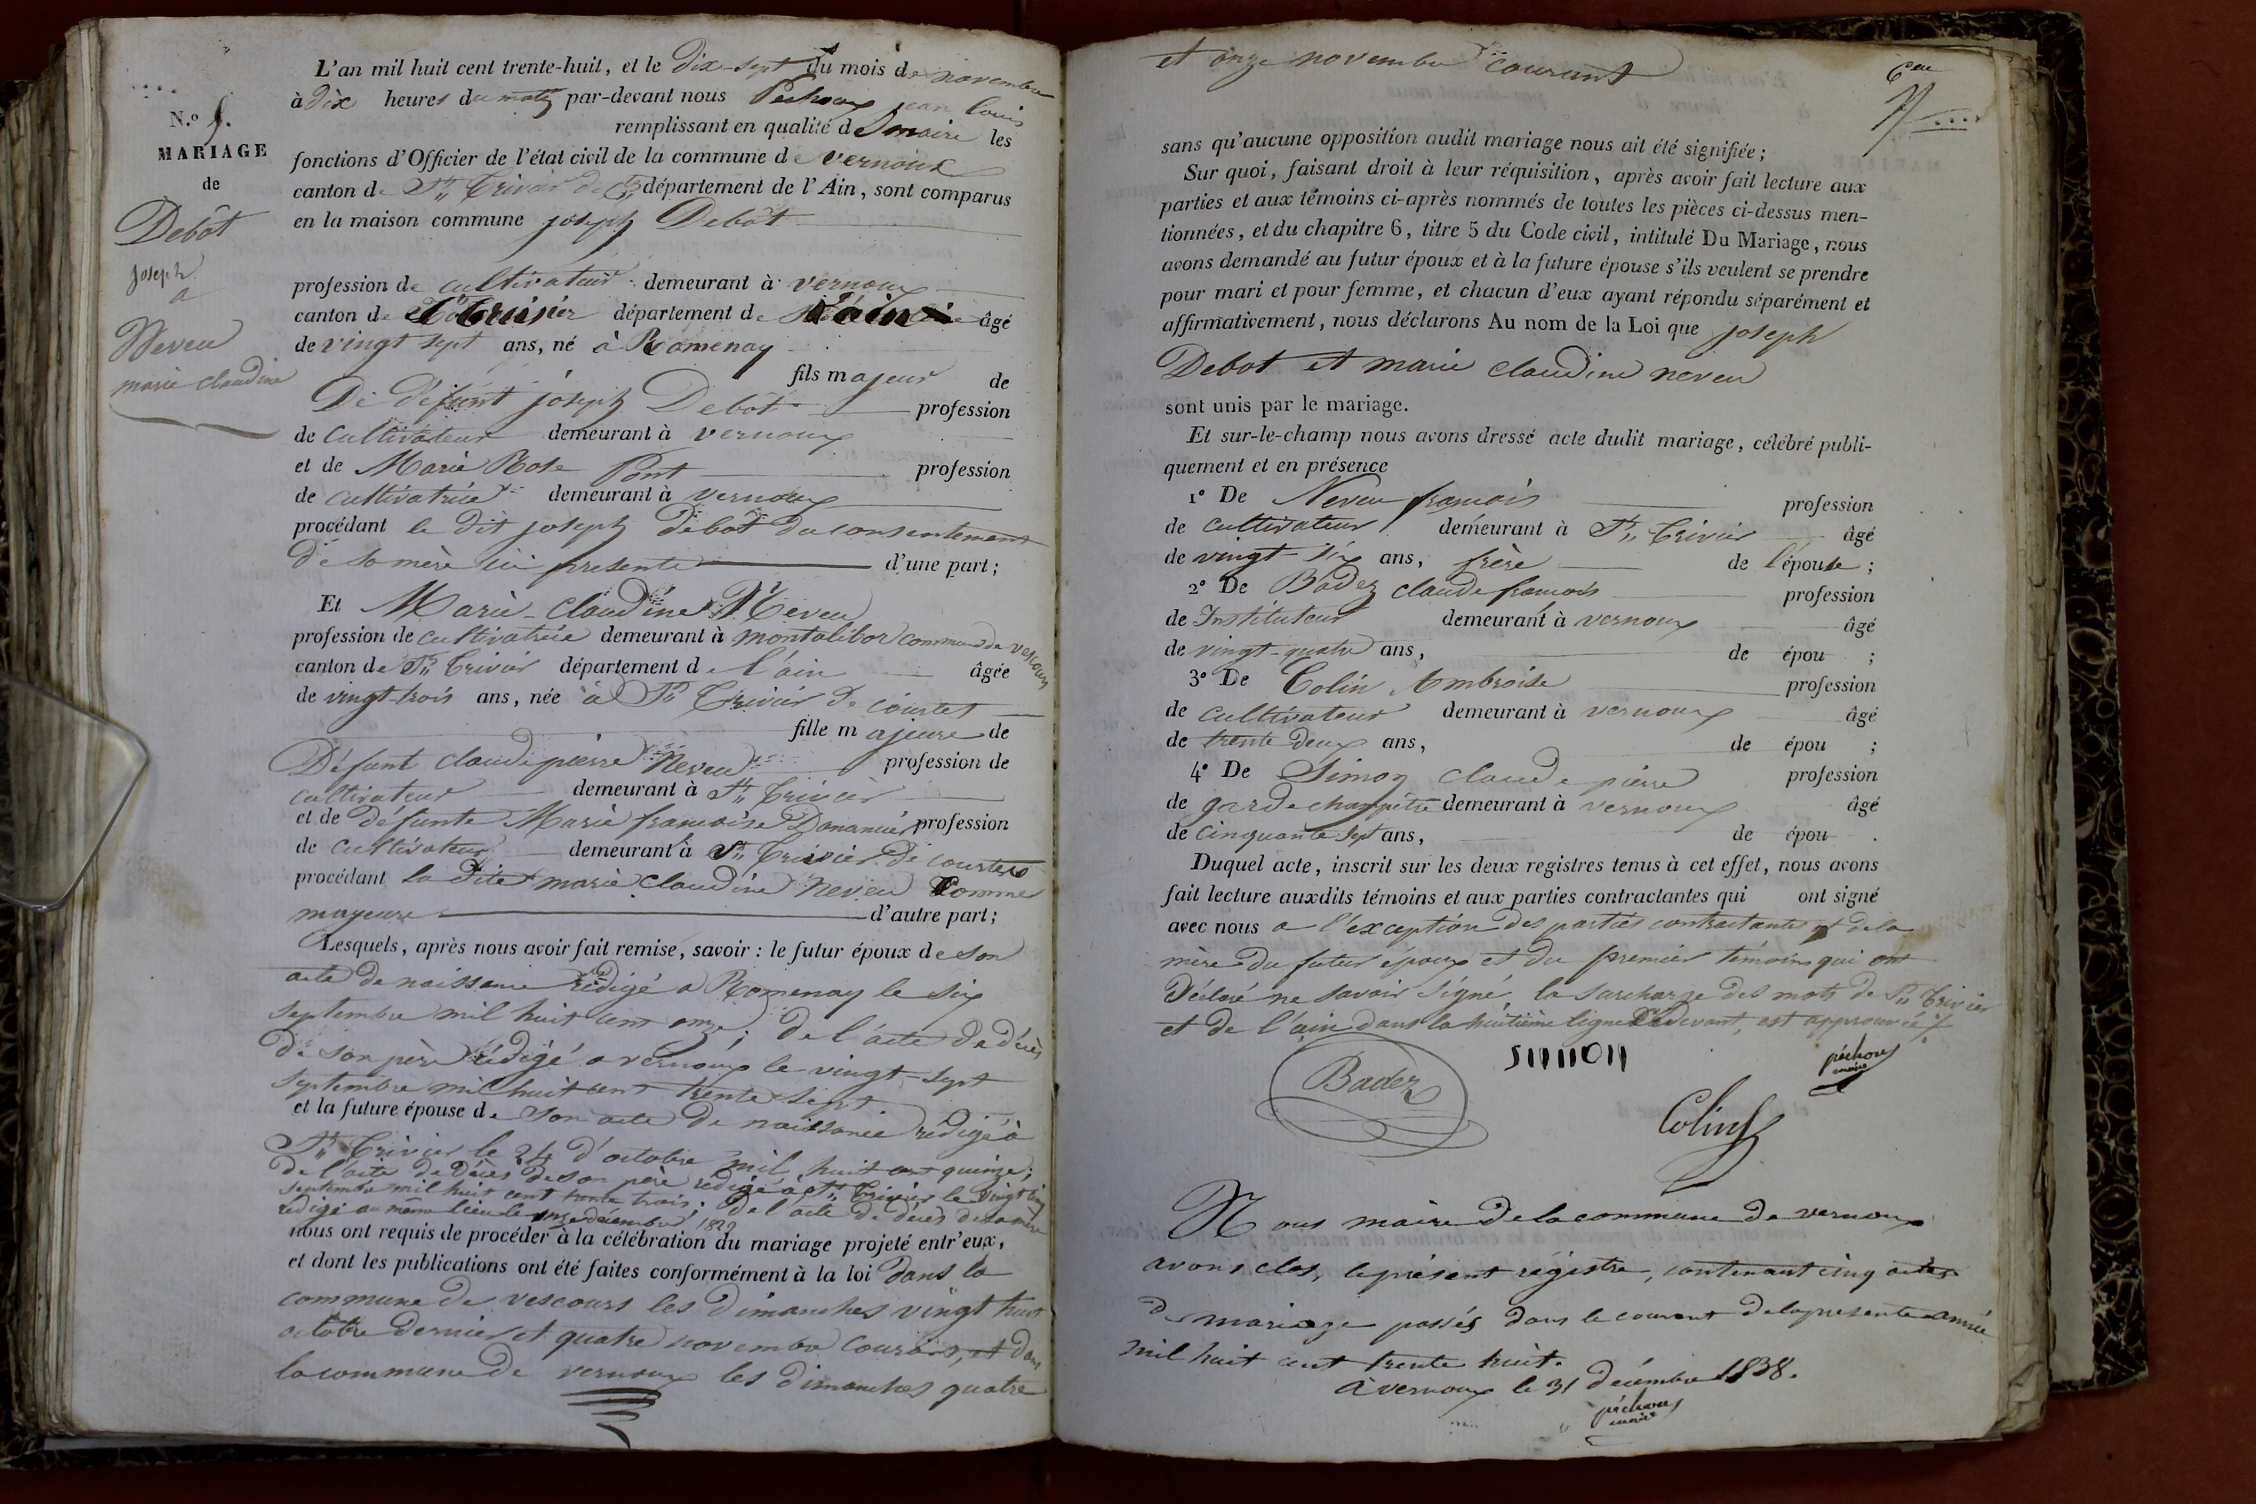 L'an mil huit cent trente-huit, et le dix-sept du mois de novembre
à dix heures du matin par-devant nous Pechoux jean louis
remplissant en qualité de maire les
fonctions d'Officier de l'état civil de la commune de vernoux
canton de St Trivier de département de l'Ain, sont comparus
en la maison commune joseph Debôt
N.o 5.
MARIAGE
de
Debôt
joseph
a
Neveu
marie claudine
profession de cultivateur demeurant à vernoux
canton de St Trivier département de l'ain âgé
de vingt sept ans, né à Romenay
fils majeur de
De défunt joseph Debôt profession
de cultivateur demeurant à vernoux
et de Marie Rose Pont profession
de cultivatrice demeurant à vernoux
procédant le dit joseph debôt du consentement
de sa mère ici presente d'une part;
Et Marie-claudine Neveu
profession de cultivatrice demeurant à montalibor commune de vescours
canton de St Trivier département de l'ain âgée
de vingt-trois ans, née à St Trivier de courtes
fille majeure de
Défunt claude pierre Neveu profession de
cultivateur demeurant à St Trivier
et de défunte Marie francoise profession
de cultivateur demeurant à St Trivier de courtes
procédant la dite marie claudine neveu Comme
majeure d'autre part;
Lesquels, après nous avoir fait remise, savoir: le futur époux de son
acte de naissance rédigé a Romenay le six
septembre mil huit cent onze; de l'acte de décès
de son père rédigé a vernoux le vingt-sept
septembre mil huit cent trente sept
et la future épouse de son acte de naissance rédigé à
St Trivier le 24 d'octobre mil huit cent quinze;
de l'acte de décès de son père rédigé à St Trivier le vingt cinq
septembre mil huit cent trente trois; de l'acte de décès de sa mère
rédigé au même lieu le onze décembre
nous ont requis de procéder à la célébration du mariage projeté entr'eux,
et dont les publications ont été faites conformément à la loi dans la
commune de vescours les dimanches vingt huit
octobre dernier et quatre novembre courant, et dans
la commune de vernoux les dimanches quatre
et onze novembre courant
sans qu'aucune opposition audit mariage nous ait été signifiée;
Sur quoi, faisant droit à leur réquisition, après avoir fait lecture aux
parties et aux témoins ci-après nommés de toutes les pièces ci-dessus men-
tionnées, et du chapitre 6, titre 5 du Code civil, intitulé Du Mariage, nous
avons demandé au futur époux et à la future épouse s'ils veulent se prendre
pour mari et pour femme, et chacun d'eux ayant répondu séparément et
affirmativement, nous déclarons Au nom de la Loi que joseph
Debot et marie claudine neveu
sont unis par le mariage.
Et sur-le-champ nous avons dressé acte dudit mariage, célébré publi-
quement et en présence
1º De Neveu francois profession
de cultivateur demeurant à St Trivier âgé
de vingt-six ans, frère de l'épouse;
2º De Badez claude francois profession
de Instituteur demeurant à vernoux âgé
de vingt-quatre ans, de épou ;
3º De Colin Ambroise profession
de cultivateur demeurant à vernoux âgé
de trente deux ans, de épou ;
4º De Simon claude pierre profession
de garde champêtre demeurant à vernoux âgé
de cinquante sept ans, de épou .
Duquel acte, inscrit sur les deux registres tenus à cet effet, nous avons
fait lecture auxdits témoins et aux parties contractantes qui ont signé
avec nous a l'exception des parties contractantes et de la
mère du futur époux et du premier témoin qui ont
déclaré ne savoir signé, la surcharge des mots de St Trivier
et de l'ain dans la huitième ligne devant, est approuvée
Badez
SIMON
péchoux
maire
Colin
Nous maire de la commune de vernoux
avons clos, le présent régistre, contenant cinq actes
de mariage passés dans le courant de la presente année
mil huit cent trente huit.
à vernoux le 31 décembre 1838.
péchoux
maire